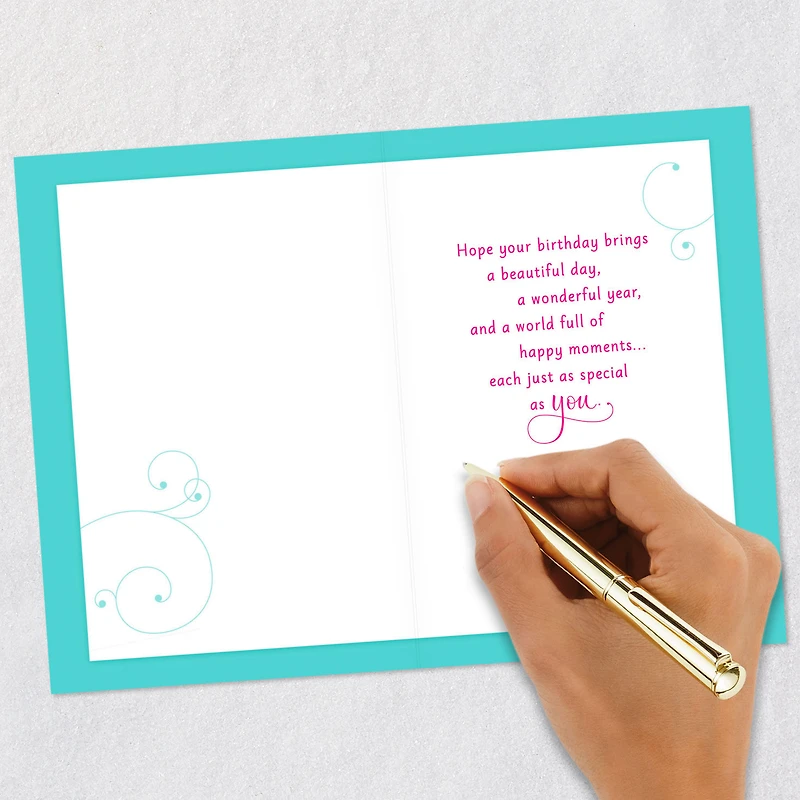 Hope your birthday brings
a beautiful day,
a wonderful year,
and a world full of
happy moments...
each just as special
as you.